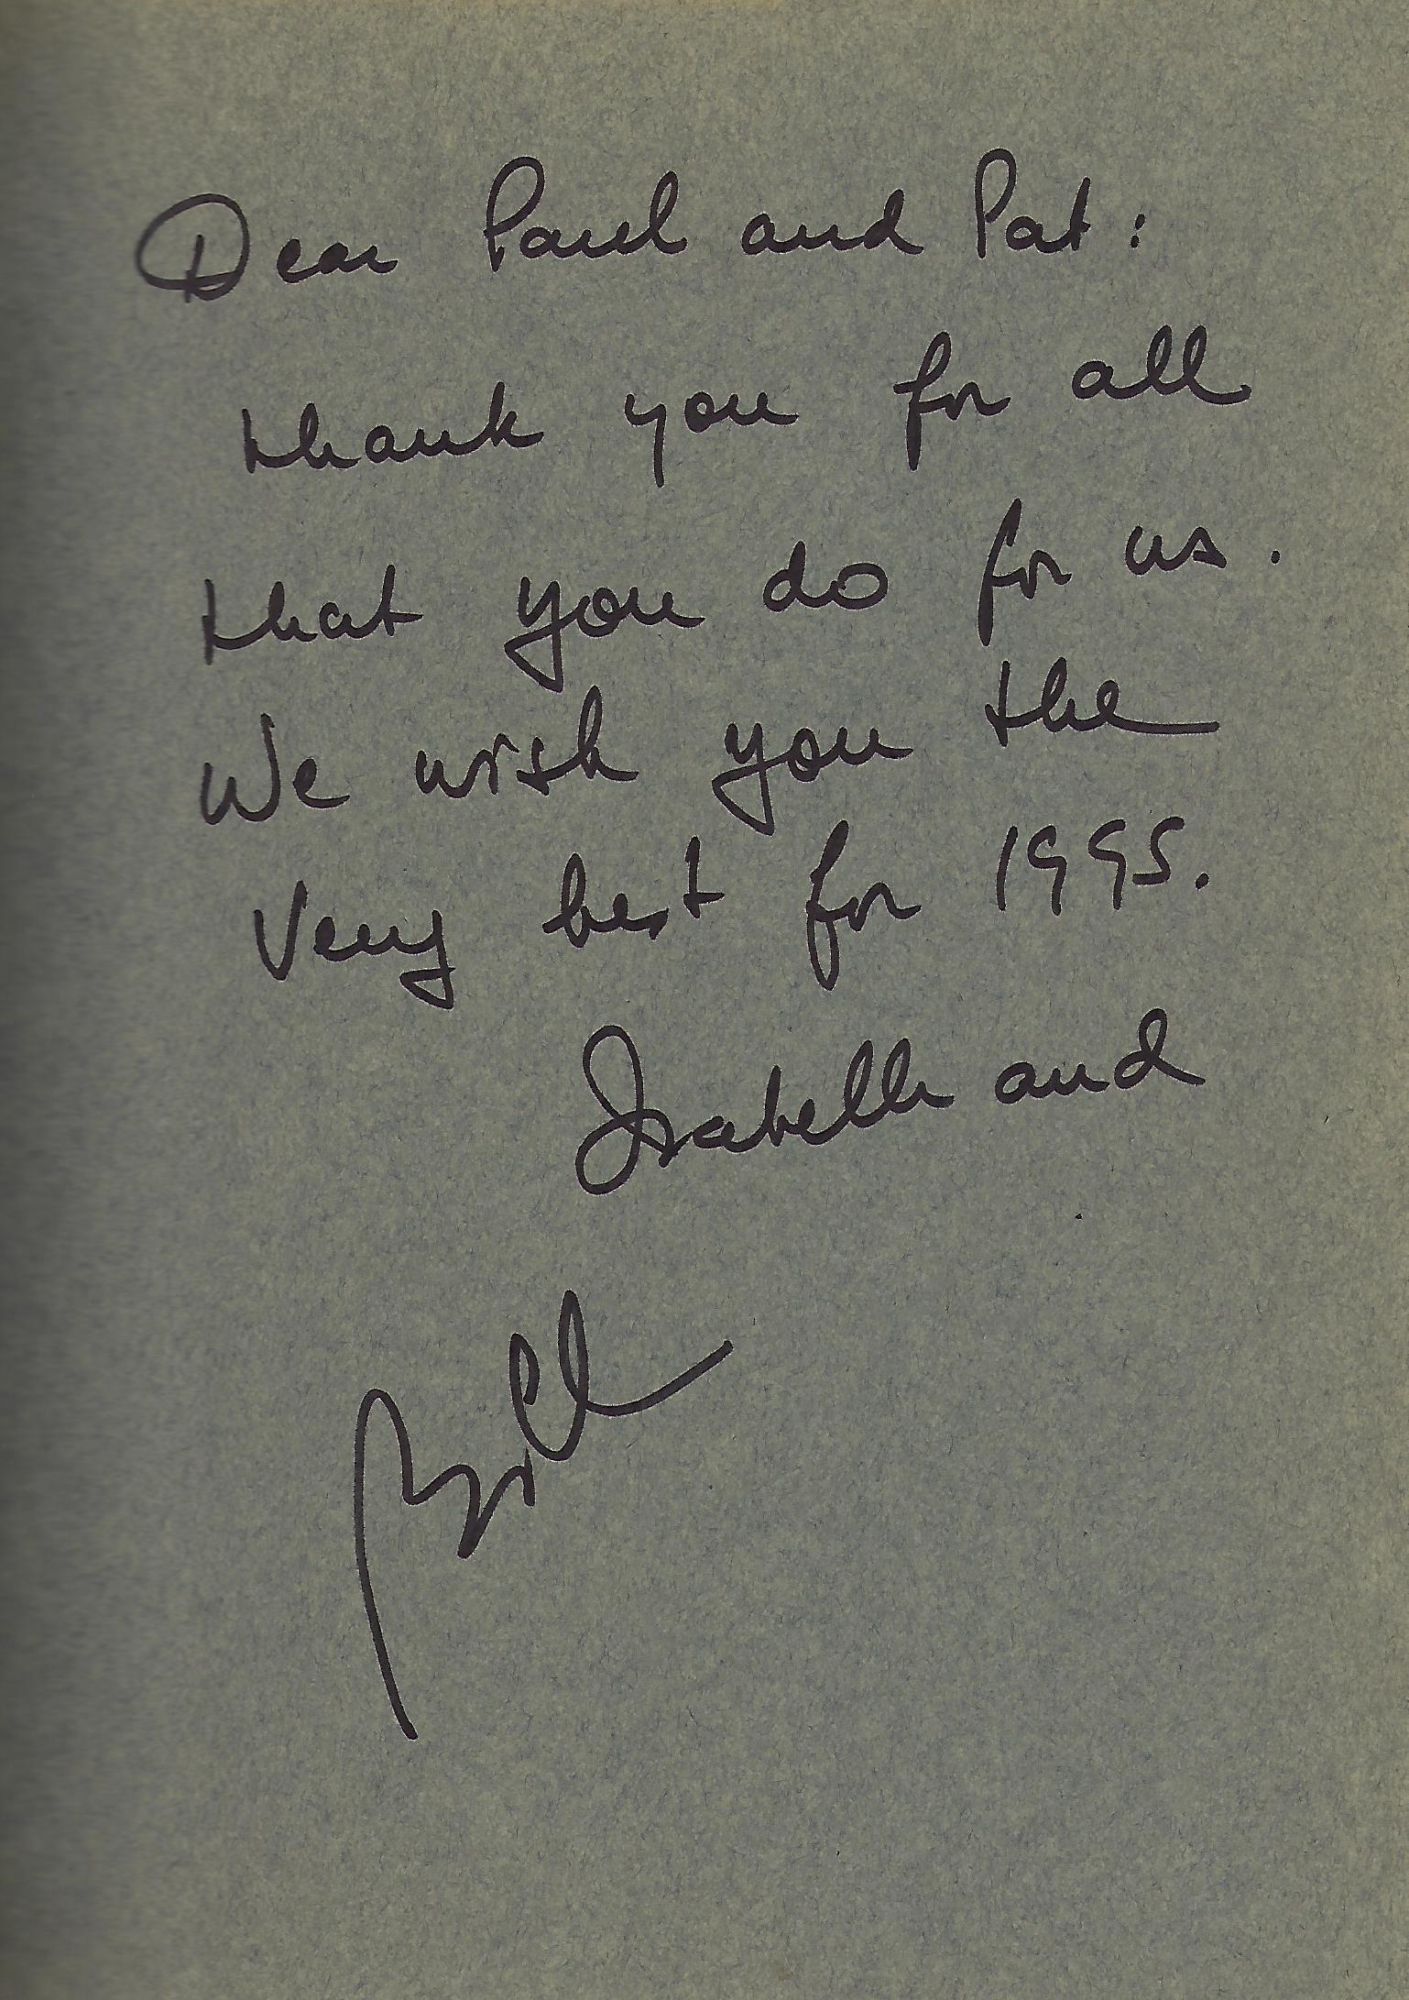 Dear Paul and Pat:
thank you for all
that you do for us.
We wish you the
Very best for 1995.
Isabelle and
Bill